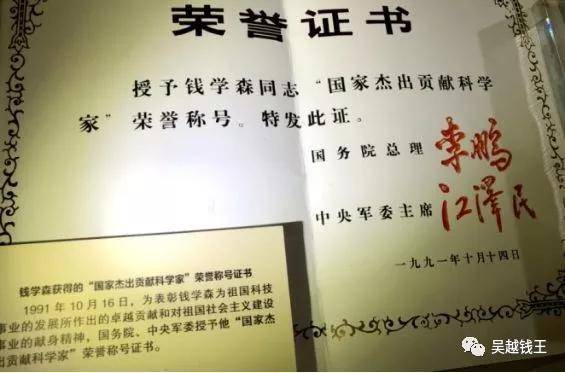 荣誉证书
授予钱学森同志“国家杰出贡献科学
家”荣誉称号。特发此证。
国务院总理 李鹏
中央军委主席 江泽民
一九九一年十月十四日
钱学森获得的“国家杰出贡献科学家”荣誉称号证书
1991年10月16日,为表彰钱学森为祖国科技
事业的发展所作出的卓越贡献和对祖国社会主义建设
事业的献身精神,国务院、中央军委授予他“国家杰
出贡献科学家”荣誉称号证书。
吴越钱王